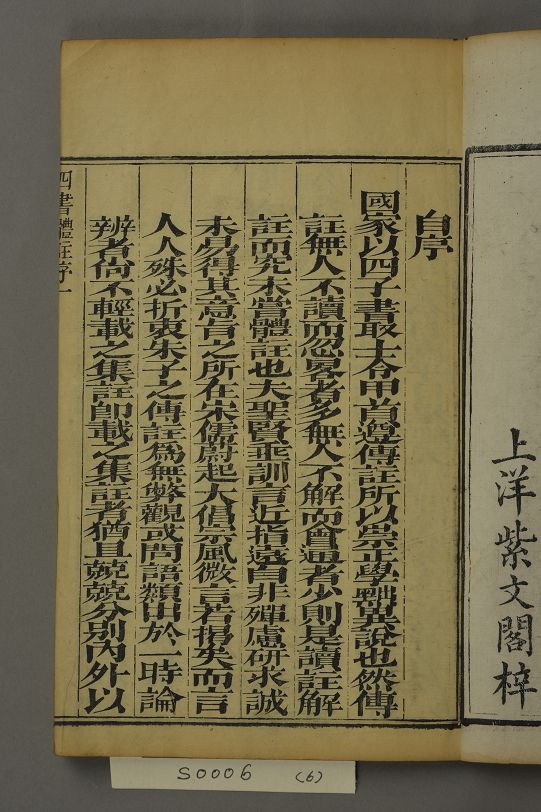 上洋紫文閣梓
自序
國家以四子書取士令甲首遵傳註所以崇正學黜異說也然傳
註無人不讀而忽畧者多無人不解而會通者少則是讀註解
註而究未嘗體註也夫聖賢垂訓言近指遠自非殫慮研求誠
未易得其意旨之所在宋儒蔚起大倡宗風微言若揭矣而言
人人殊必折衷朱子之傳註爲無弊觀或問語類出於一時論
辨者尙不輕載之集註卽載之集註者猶且兢兢分別內外以
四書體註序一
S0006 (6)